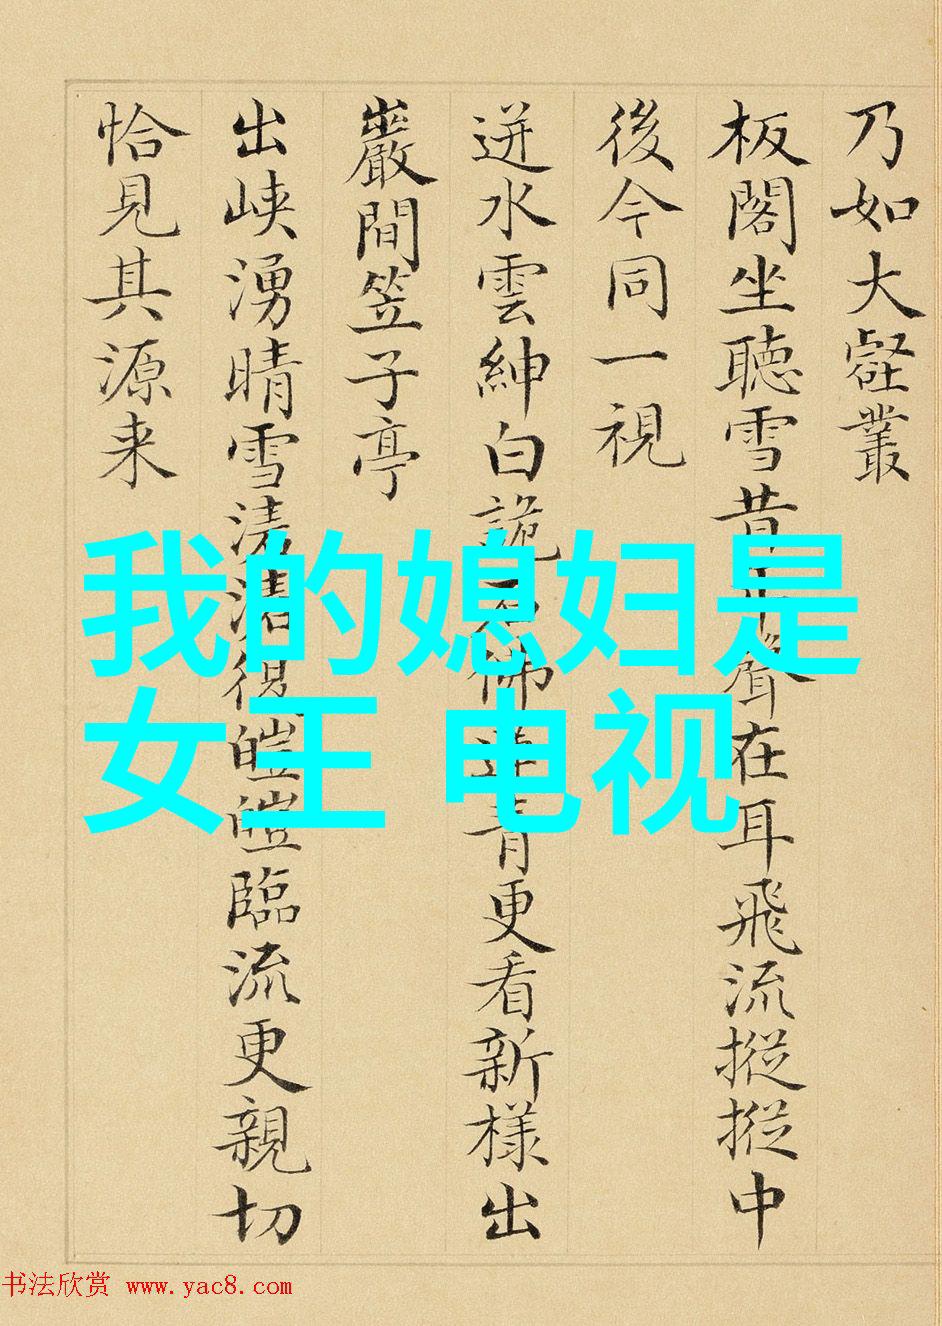 乃如大壑叢
板閣坐聽雪昔年聲在耳飛流摐摐中
後今同一視
迸水雲紳白詭石佛蓮青更看新樣出
巖間笠子亭
出峽湧晴雪淸淸復皚皚臨流更親切
恰見其源来
我的媳妇是
女王 电视
书法欣赏 www.yac8.com